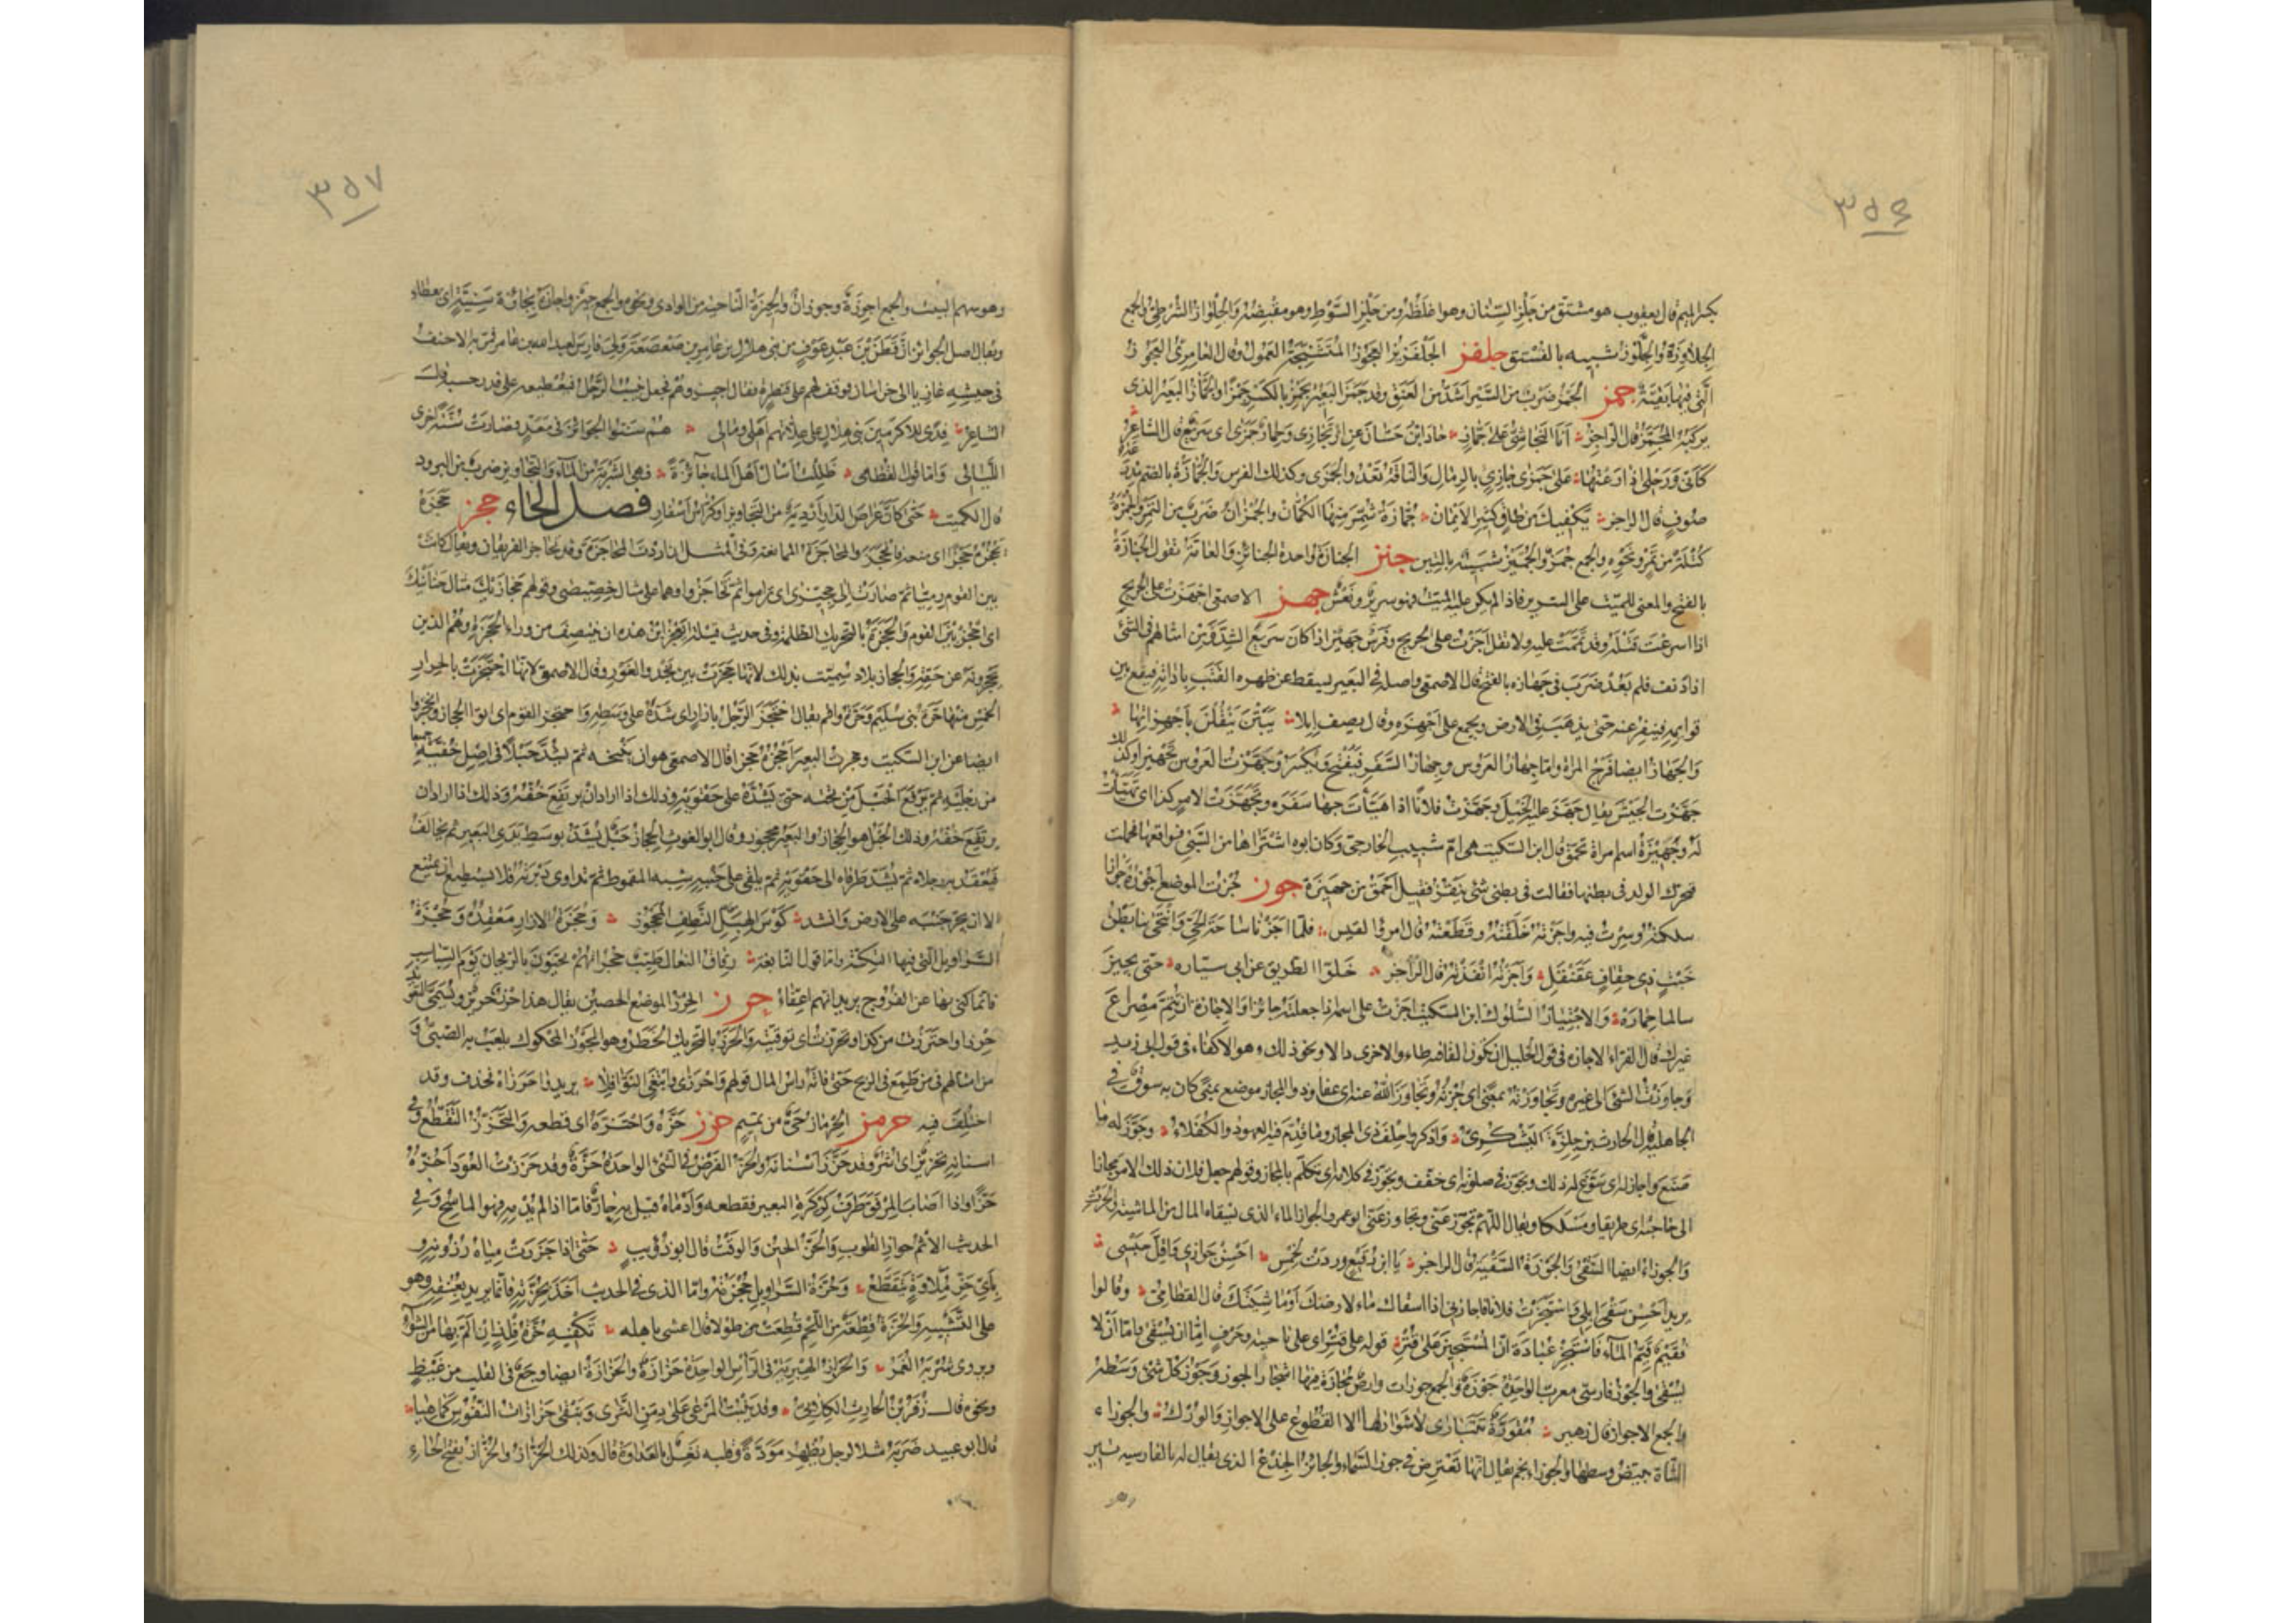 ٣٥٦
بكسر الميم قال يعقوب هو مشتق من جَلْز السِّنان وهو اغلظُه ومن جَلْز السَّوْط وهو مقبِضُه والجِلْواز الشُرطِيّ والجمع
الجلاوِزة والجِلَّوْز شبيه بالفُسْتق جلفز الجَلْفَزيز العجوز المُتَشَنِّجة العَمول وقال العامرىّ العجوز
الّتى فيها بقيّة جمز الجَمْز ضرب من السَّير اَشدّ من العَنَق وقد جَمَز البعير يَجْمِز بالكسر جَمْزًا والجَمّاز البعير الذى
يركبه المُجَمِّز قال الراجز انا النجاشىّ على جَمّاز حاد ابن حسّان عن ارتجازى وحمار جَمَزى اى سريع قال الشاعر
كأنّى ورَحْلى اذا رُعْتها على جَمَزى جازئ بالرمال والناقة تعدو الجَمَزى وكذلك الفرس والجُمّازة بالضم مدرعة
صوف قال الراجز يكفيك من طاق كثير الاثمان جُمّازة شُمِّر منها الكُمّان والجُمْزان ضرب من التمر والجُمْزة
كُتْلة من تمر ونحوه والجمع جُمَز والجُمَّيز شبيه بالتين جنز الجِنازة واحدة الجنائز والعامّة تقول الجَنازة
بالفتح والمعنى للميّت على السرير فاذا لم يكن عليه الميّت فهو سرير ونعش جهز الاصمعى اجهزت على الجريح
اذا اسرعت قتله وقد تمّمت عليه ولا تقل اجزت على الجريح وفرس جهيز اذا كان سريع الشدّ ومن امثالهم فى الشئ
اذا نفر فلم يعد ضرب فى جهازه بالفتح قال الاصمعى واصله فى البعير يسقط عن ظهره القتب باداته فيقع بين
قوايمه فينفر عنه حتى يذهب فى الارض ويجمع على اجهزة وقال يصف ابلا يبتن ينقلن باجهزاتها
والجهاز ايضا فرج المراة وامّا جهاز العروس وجهاز السفر فيفتح ويكسر وجهّزت العروس تجهيزا وكذلك
جهّزت الجيش يقال جهّز علىّ الخيل وجهّزت فلانا اذا هيّات جهاز سفره وتجهّزت لامر كذا اى تهيّات
له وجهيزة اسم امراة تحمّق قال ابن السكيت هى امّ شبيب الخارجىّ وكان ابوه اشتراها من السبى فواقعها فحملت
فتحرّك الولد فى بطنها فقالت فى بطنى شئ ينقز فقيل احمق من جهيزة جوز جزت الموضع اجوزه جوازا
سلكته وسرت فيه واجزته خلّفته وقطعته قال امرؤ القيس فلمّا اجزنا ساحة الحىّ وانتحى بنا بطن
خبت ذى حقاف عقنقل واجزته انفذته قال الراجز خلّوا الطريق عن ابى سيّاره حتى يجيز
سالما حماره والاجتياز السلوك ابن السكيت اجزت على اسمه اذا جعلته جائزا والاجازة ان تتمّ مصراع
غيرك قال الفراء الاجازة فى قول الخليل ان تكون القافية طاء والاخرى دالا ونحو ذلك وهو الاكفاء فى قول ابى زيد
وجاوزت الشئ الى غيره وتجاوزته بمعنى اى جزته وتجاوز الله عنه اى عفا وذو المجاز موضع بمنى كان به سوق فى
الجاهلية قال الحارث بن حلّزة اليشكرىّ واذكروا حلف ذى المجاز وما قدّم فيه العهود والكفلاء وجوّز له ما
صنع واجاز له اى سوّغ له ذلك وتجوّز فى صلوته اى خفّف وتجوّز فى كلامه اى تكلّم بالمجاز وقولهم جعل فلان ذلك الامر مجازا
الى حاجته اى طريقا ومسلكا ويقال اللّهمّ تجوّز عنّى وتجاوز عنّى ابو عمرو الجواز الماء الذى يسقاه المال من الماشية والحرث
والجواز ايضا السقى والجوزة السقية قال الراجز يا ابن رقيع وردت لخمس احسن جوازى واقلّ حبسى
يريد احسن سقى ابلى واستجزت فلانا فاجازنى اذا اسقاك ماء لارضك او ماشيتك قال القطامىّ وقالوا
فقيم قيّم الماء فاستجز عبادة انّ المستجيز على قتر قوله على قتر اى على ناحية وحرف امّا ان يسقى وامّا ان لا
يسقى والجوز فارسىّ معرّب الواحدة جوزة والجمع جوزات وارض مجازة فيها اشجار الجوز وجوز كلّ شئ وسطه
والجمع الاجواز قال زهير مقورّة تتبارى لا شوار لها الا القطوع على الاجواز والورك والجوزاء
الشاة يبيضّ وسطها والجوزاء نجم يقال انّها تعترض فى جوز السماء والجائز الجذع الذى يقال له بالفارسية تير
٣٥٧
وهو سهم البيت والجمع اجوزة وجوزان والجيزة الناحية من الوادى ونحوه والجمع جيز واجازه بجائزة سنيّة اى بعطاء
ويقال اصل الجوائز انّ قطن بن عبد عوف من بنى هلال بن عامر بن صعصعة ولى فارس لعبد الله بن عامر فمرّ به الاحنف
فى جيشه غازيا الى خراسان فوقف لهم على قنطرة فقال اجيزوهم فجعل ينسب الرجل فيعطيه على قدر حسبه قال
الشاعر فدى للاكرمين بنى هلال على علّاتهم اهلى ومالى هم سنّوا الجوائز فى معدّ فصارت سنّة اخرى
الليالى وامّا قول القطامى ظللت اسال اهل الماء جائزة فهى الشربة من الماء والتجاويز ضرب من البرود
قال الكميت حتى كانّ عراص الدار اردية من التجاويز او كرّاس اسفار فصل الحاء حجز حجزه
يحجزه حجزا اى منعه فانحجز والمحاجزة الممانعة وفى المثل ان اردت المحاجزة فقبل المناجزة وقد تحاجز الفريقان ويقال كانت
بين القوم رمّيّا ثمّ صارت الى حجّيزى اى تراموا ثم تحاجزوا وهما على مثال خصّيصى وقولهم حجازيك مثال حنانيك
اى احجز بين القوم والحجزة بالتحريك الظلمة وفى حديث قيلة ايعجز ابن هذه ان ينتصف من وراء الحجزة وهم الذين
يحجزونه عن حقّه والحجاز بلاد سمّيت بذلك لانها حجزت بين نجد والغور وقال الاصمعى لانها احتجزت بالحرار
الخمس منها حرّة بنى سليم وحرّة واقم يقال احتجز الرجل بازار اى شدّه على وسطه واحتجز القوم اى اتوا الحجاز وانحجزوا
ايضا عن ابن السكيت وحجزت البعير احجزه حجزا قال الاصمعى هو ان تنيخه ثم تشدّ حبلا فى اصل خفّيه جميعا
من رجليه ثم ترفع الحبل من تحته حتى تشدّه على حقويه وذلك اذا اراد ان يرتفع خفّه وذلك اذا اراد ان
يرتفع خفه وذلك الحبل هو الحجاز والبعير محجوز وقال ابو الغوث الحجاز حبل يشدّ بوسط يدى البعير ثم يخالف
فيعقد به رجلاه ثم يشدّ طرفاه الى حقويه ثم يلقى على جنبه شبه المقموط ثم تداوى دبرته فلا يستطيع ان يمتنع
الا ان يجرّ جنبه على الارض وانشد كوس الهبلّ النطف المحجوز وحجزة الازار معقده وحجزة
السراويل التى فيها التكّة وامّا قول النابغة رقاق النعال طيّب حجزاتهم يحيّون بالريحان يوم السباسب
فانّما كنى بها عن الفروج يريد انّهم اعفّاء حرز الحرز الموضع الحصين يقال هذا حرز حريز ويسمّى التعويذ
حرزا واحترزت من كذا وتحرّزت اى توقّيته والحرز بالتحريك الخطر وهو الجوز المحكوك يلعب به الصبىّ و
من امثالهم فيمن طمع فى الربح حتى فاته راس المال قولهم واحرزى وابتغى النوافلا يريد واحرزاه فحذف وقد
اختلف فيه حرمز الحرماز حىّ من تميم حزز حزّه واحتزّه اى قطعه والتحزّز التقطّع وفى
اسنانه تحزيز اى اشر وقد حزّز اسنانه والحزّ الفرض فى الشئ الواحدة حزّة وقد حززت العود احزّه
حزّا واذا اصاب المرفق طرف كركرة البعير فقطعه وادماه قيل به حازّ فامّا اذا لم يدمه فهو الماسح وفى
الحديث الاثم حوازّ القلوب والحزّ الحين والوقت قال ابو ذؤيب حتى اذا جزرت مياه رزونه و
باىّ حزّ ملاوة يتقطّع وحزّة السراويل حجزته وامّا الذى فى الحديث اخذ بحزّته فانّما يريد بعنقه وهو
على التشبيه والحزّة قطعة من اللحم قطعت من طولا قال اعشى باهله تكفيه حزّة فلذان المّ بها من الشواء
ويروى شربه الغمر والحزاز الهبرية فى الراس الواحدة حزازة والحزازة ايضا وجع فى القلب من غيظ
ونحوه قال زفر بن الحارث الكلابى وقد ينبت المرعى على دمن الثرى وتبقى حزازات النفوس كما هيا
قال ابو عبيد ضربه مثلا لرجل يظهر مودّة وقلبه نغل بالعداوة قال وكذلك الحزّاز والحزاز بفتح الحاء